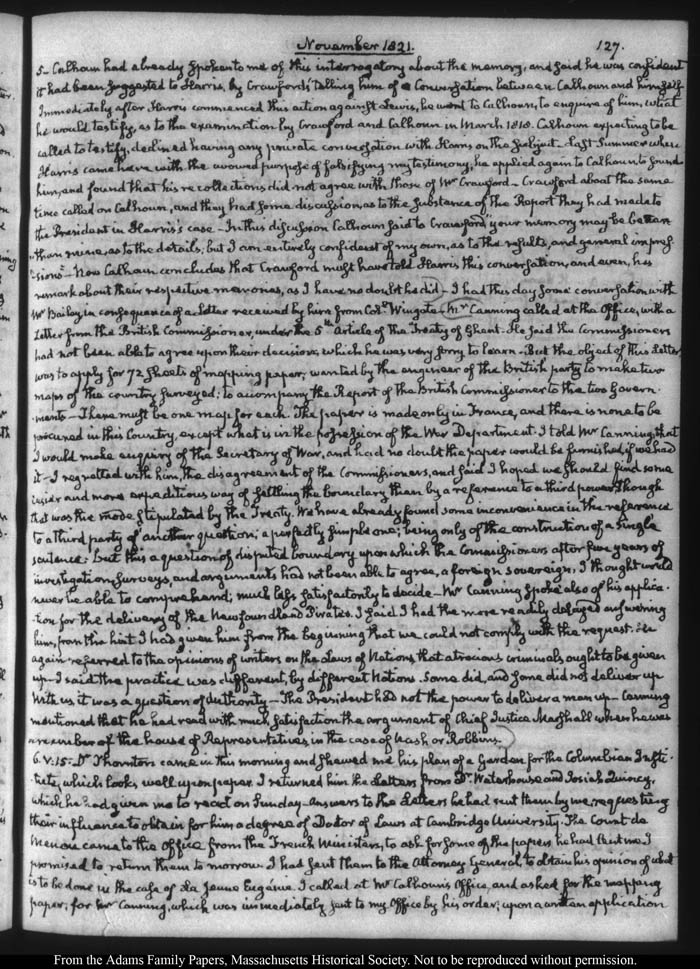 November 1821.
127.
5– Calhoun had already spoken to me of this interrogatory about the memory, and said he was confident
it had been suggested to Harris, by Crawford's telling him of a Conversation between Calhoun and himself
Immediately after Harris commenced this action against Lewis, he went to Calhoun, to enquire of him, what
he would testify, as to the examination by Crawford and Calhoun in March 1818. Calhoun expecting to be
called to testify, declined having any private conversation with Harris on the subject. Last Summer when
Harris came here with the avowed purpose of falsifying my testimony, he applied again to Calhoun to sound
him, and found that his recollections did not agree with those of Mr Crawford – Crawford about the same
time called on Calhoun, and they had some discussion, as to the substance of the Report they had made to
the President in Harris's case – In this discussion Calhoun said to Crawford "your memory may be better
than mine, as to the details; but I am entirely confident of my own, as to the results, and general impres-
"sions"– Now Calhoun concludes that Crawford must have told Harris this conversation, and even, his
remark about their respective memories, as I have no doubt he did – I had this day some conversation with
Mr Bailey in consequence of a Letter received by him from Coll. Wingate – Mr Canning called at the Office, with a
Letter from the British Commissioner, under the 5th Article of the Treaty of Ghent. He said the Commissioners
had not been able to agree upon their decision, which he was very sorry to learn – But the object of this Letter
was to apply for 72 sheets of mapping paper, wanted by the engineer of the British party to make two
maps of the country surveyed; to accompany the Report of the British Commissioner to the two Govern-
ments – There must be one map for each. The paper is made only in France, and there is none to be
procured in this Country, except what is in the possession of the War Department. I told Mr Canning, that
I would make enquiry of the Secretary of War, and had no doubt the paper would be furnished, if we had
it – I regretted with him, the disagreement of the Commissioners, and said I hoped we should find some
easier and more expeditious way of settling the boundary than by a reference to a third power, though
that was the mode stipulated by the Treaty. We have already found some inconvenience in the reference
to a third party of another question; a perfectly simple one; being only of the construction of a single
sentence. But this a question of disputed boundary upon which the Commissioners after five years of
investigation, surveys, and arguments had not been able to agree, a foreign sovereign, I thought would
never be able to comprehend; much less satisfactorily to decide – Mr Canning spoke also of his applica-
tion for the delivery of the Newfoundland Pirates. I said I had the more readily delayed answering
him, from the hint I had given him from the beginning that we could not comply with the request. He
again referred to the opinions of writers on the Laws of Nations, that atrocious criminals ought to be given
up – I said the practice was different, by different Nations. Some did, and some did not deliver up
With us it was a question of Authority – The President had not the power to deliver a man up – Canning
mentioned that he had read with much satisfaction the argument of Chief Justice Marshall when he was
a member of the house of Representatives, in the case of Nash or Robbins.
6. V:15– Dr Thornton came in this morning and shewed me his plan of a Garden for the Columbian Insti-
tute, which looks well upon paper. I returned him the Letters from Dr Waterhouse and Josiah Quincy,
which he had given me to read on Sunday – Answers to the Letters he had sent them by me, requesting
their influence to obtain for him a degree of Doctor of Laws at Cambridge University. The Count de
Menou came to the office from the French Minister, to ask for some of the papers he had sent me I
promised to return them to morrow. I had sent them to the Attorney General, to obtain his opinion of what
is to be done in the case of La Jeune Eugenie. I called at Mr Calhoun's Office, and asked for the mapping
paper, for Mr Canning, which was immediately sent to my Office by his order; upon a written application
From the Adams Family Papers, Massachusetts Historical Society. Not to be reproduced without permission.